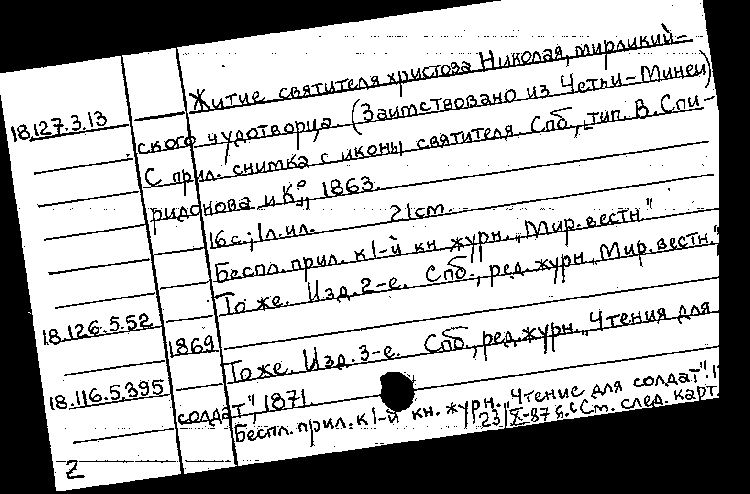 Житие святителя христова Николая, мирликий-
18.127.3.13
ского чудотворца (Заимствовано из Четьи-Минеи)
С прил. снимка с иконы святителя. Спб, тип. В. Спи-
ридонова и Ко, 1863.
16 с.; 1 л. ил. 21 cm.
Беспл. прил. к 1-й кн. журн. „Мир. вестн."
То же. Изд. 2-е. Спб, ред. журн. „Мир. вестн."
18.126.5.52 1869
То же. Изд. 3-е. Спб., ред. журн. „Чтения для
18.116.5.395 солдат", 1871.
Беспл. прил. к 1-й кн. журн. „Чтение для солдат"
23/X-87 г. См. след. карт.
Z